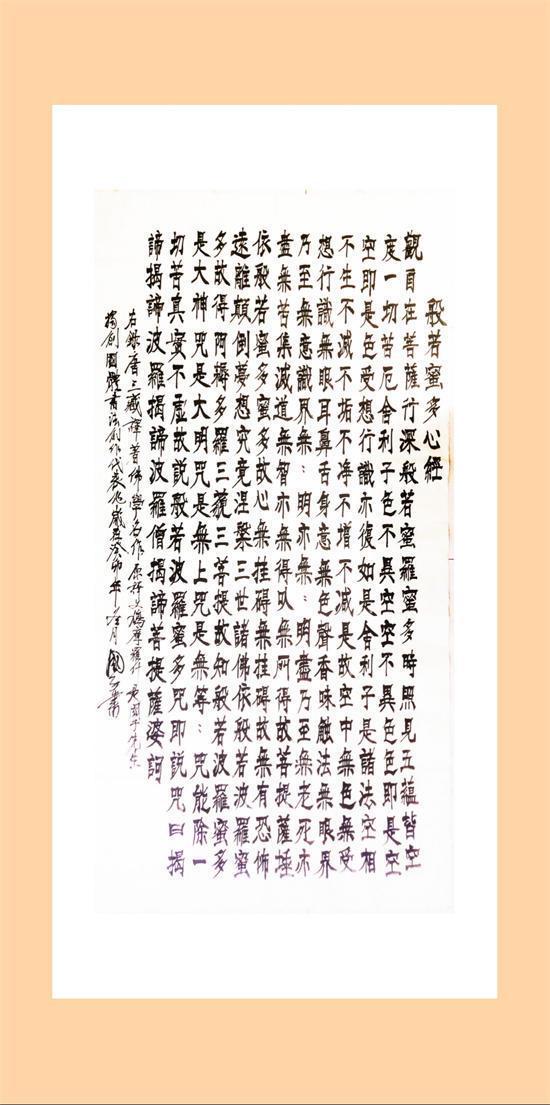 般若蜜多心經
觀自在菩薩行深般若蜜羅蜜多時照見五蘊皆空
度一切苦厄舍利子色不異空空不異色色即是空
空即是色受想行識亦復如是舍利子是諸法空相
不生不滅不垢不净不增不減是故空中無色無受
想行識無眼耳鼻舌身意無色聲香味蝕法無眼界
乃至無意識界無：明亦無：明盡乃至無老死亦
盡無苦集滅道無智亦無得以無所得故菩提薩埵
依般若蜜多蜜多故心無挂礙無挂礙故無有恐怖
遠離顛倒夢想究竟涅槃三世諸佛依般若波羅蜜
多故得阿耨多羅三藐三菩提故知般若波羅蜜多
是大神咒是大明咒是無上咒是無等：咒能除一
切苦真實不虛故説般若波羅蜜多咒即説咒曰揭
諦揭諦波羅揭諦波羅僧揭諦菩提薩婆訶
右錄唐三藏譯著佛學名作原譯文鳩摩羅什
獨創圓體書法創作代表歲在癸卯年月